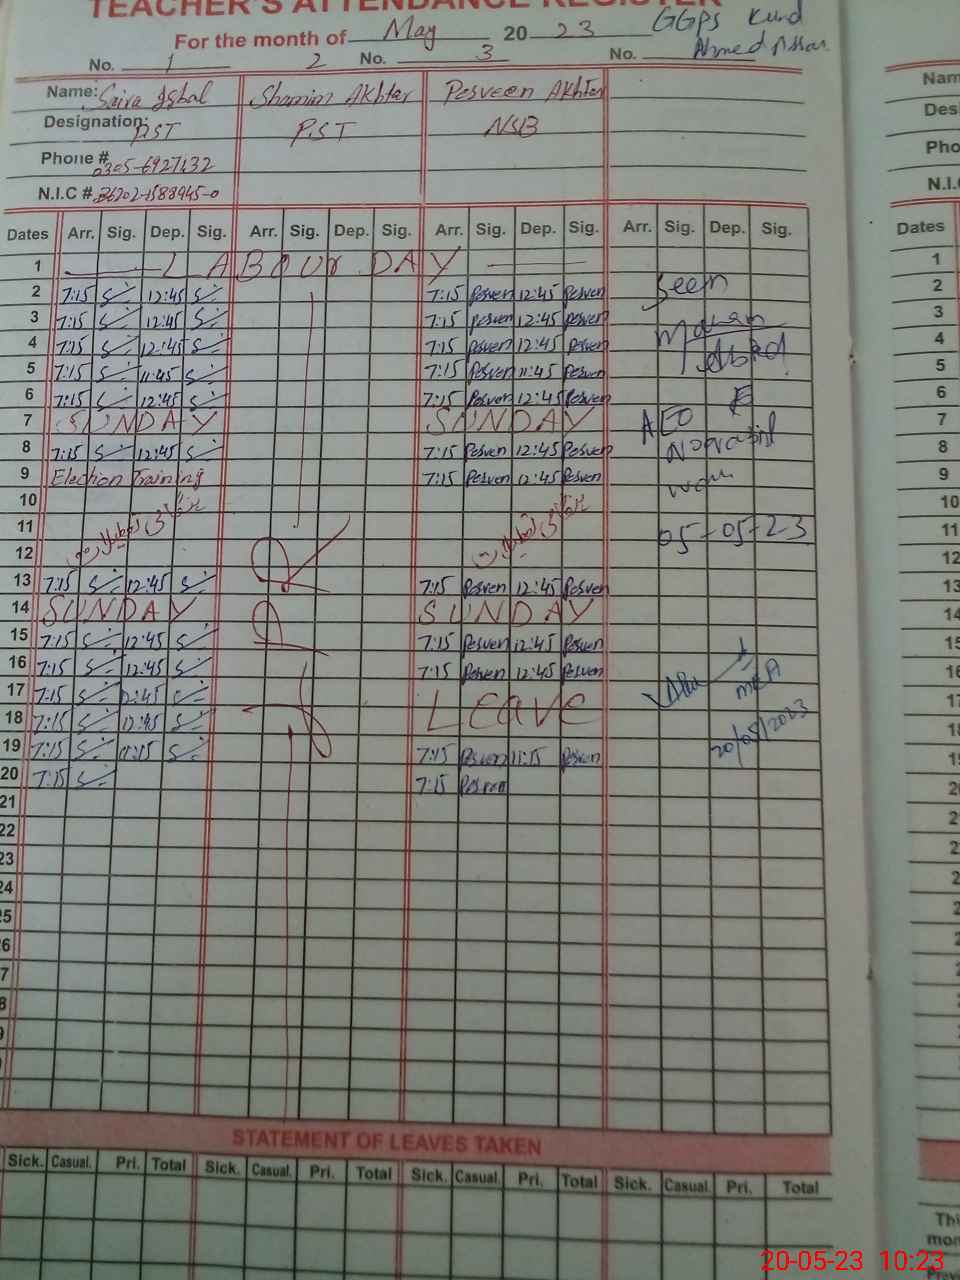 TEACHER'S ATTENDANCE REGISTER
For the month of May 20 23 GGPS Kund
No. 1 2 No. 3 No. Ahmed
Name: Saira Iqbal Shamim Akhtar Pesveen Akhter
Designation: PST PST NSB
Phone # 0305-6927132
N.I.C # 36202-1588945-0
Dates Arr. Sig. Dep. Sig. Arr. Sig. Dep. Sig. Arr. Sig. Dep. Sig. Arr. Sig. Dep. Sig.
1 LABOUR DAY
2 7:15 12:45 7:15 Pesven 12:45 Pesven Seen
3 7:15 12:45 7:15 Pesven 12:45 Pesven
4 7:15 12:45 7:15 Pesven 12:45 Pesven
5 7:15 11:45 7:15 Pesven 11:45 Pesven
6 7:15 12:45 7:15 Pesven 12:45 Pesven
7 SUNDAY SUNDAY AEO
8 7:15 12:45 7:15 Pesven 12:45 Pesven
9 Election Training 7:15 Pesven 12:45 Pesven
10
11 05-05-23
12
13 7:15 12:45 7:15 Pesven 12:45 Pesven
14 SUNDAY SUNDAY
15 7:15 12:45 7:15 Pesven 12:45 Pesven
16 7:15 12:45 7:15 Pesven 12:45 Pesven
17 7:15 12:45 Leave MEA
18 7:15 12:45 20/05/2023
19 7:15 11:15 7:15 Pesven 11:15 Pesven
20 7:15 7:15 Pesven
21
22
23
24
25
26
27
28
STATEMENT OF LEAVES TAKEN
Sick. Casual. Pri. Total Sick. Casual. Pri. Total Sick. Casual. Pri. Total Sick. Casual. Pri. Total
20-05-23 10:23